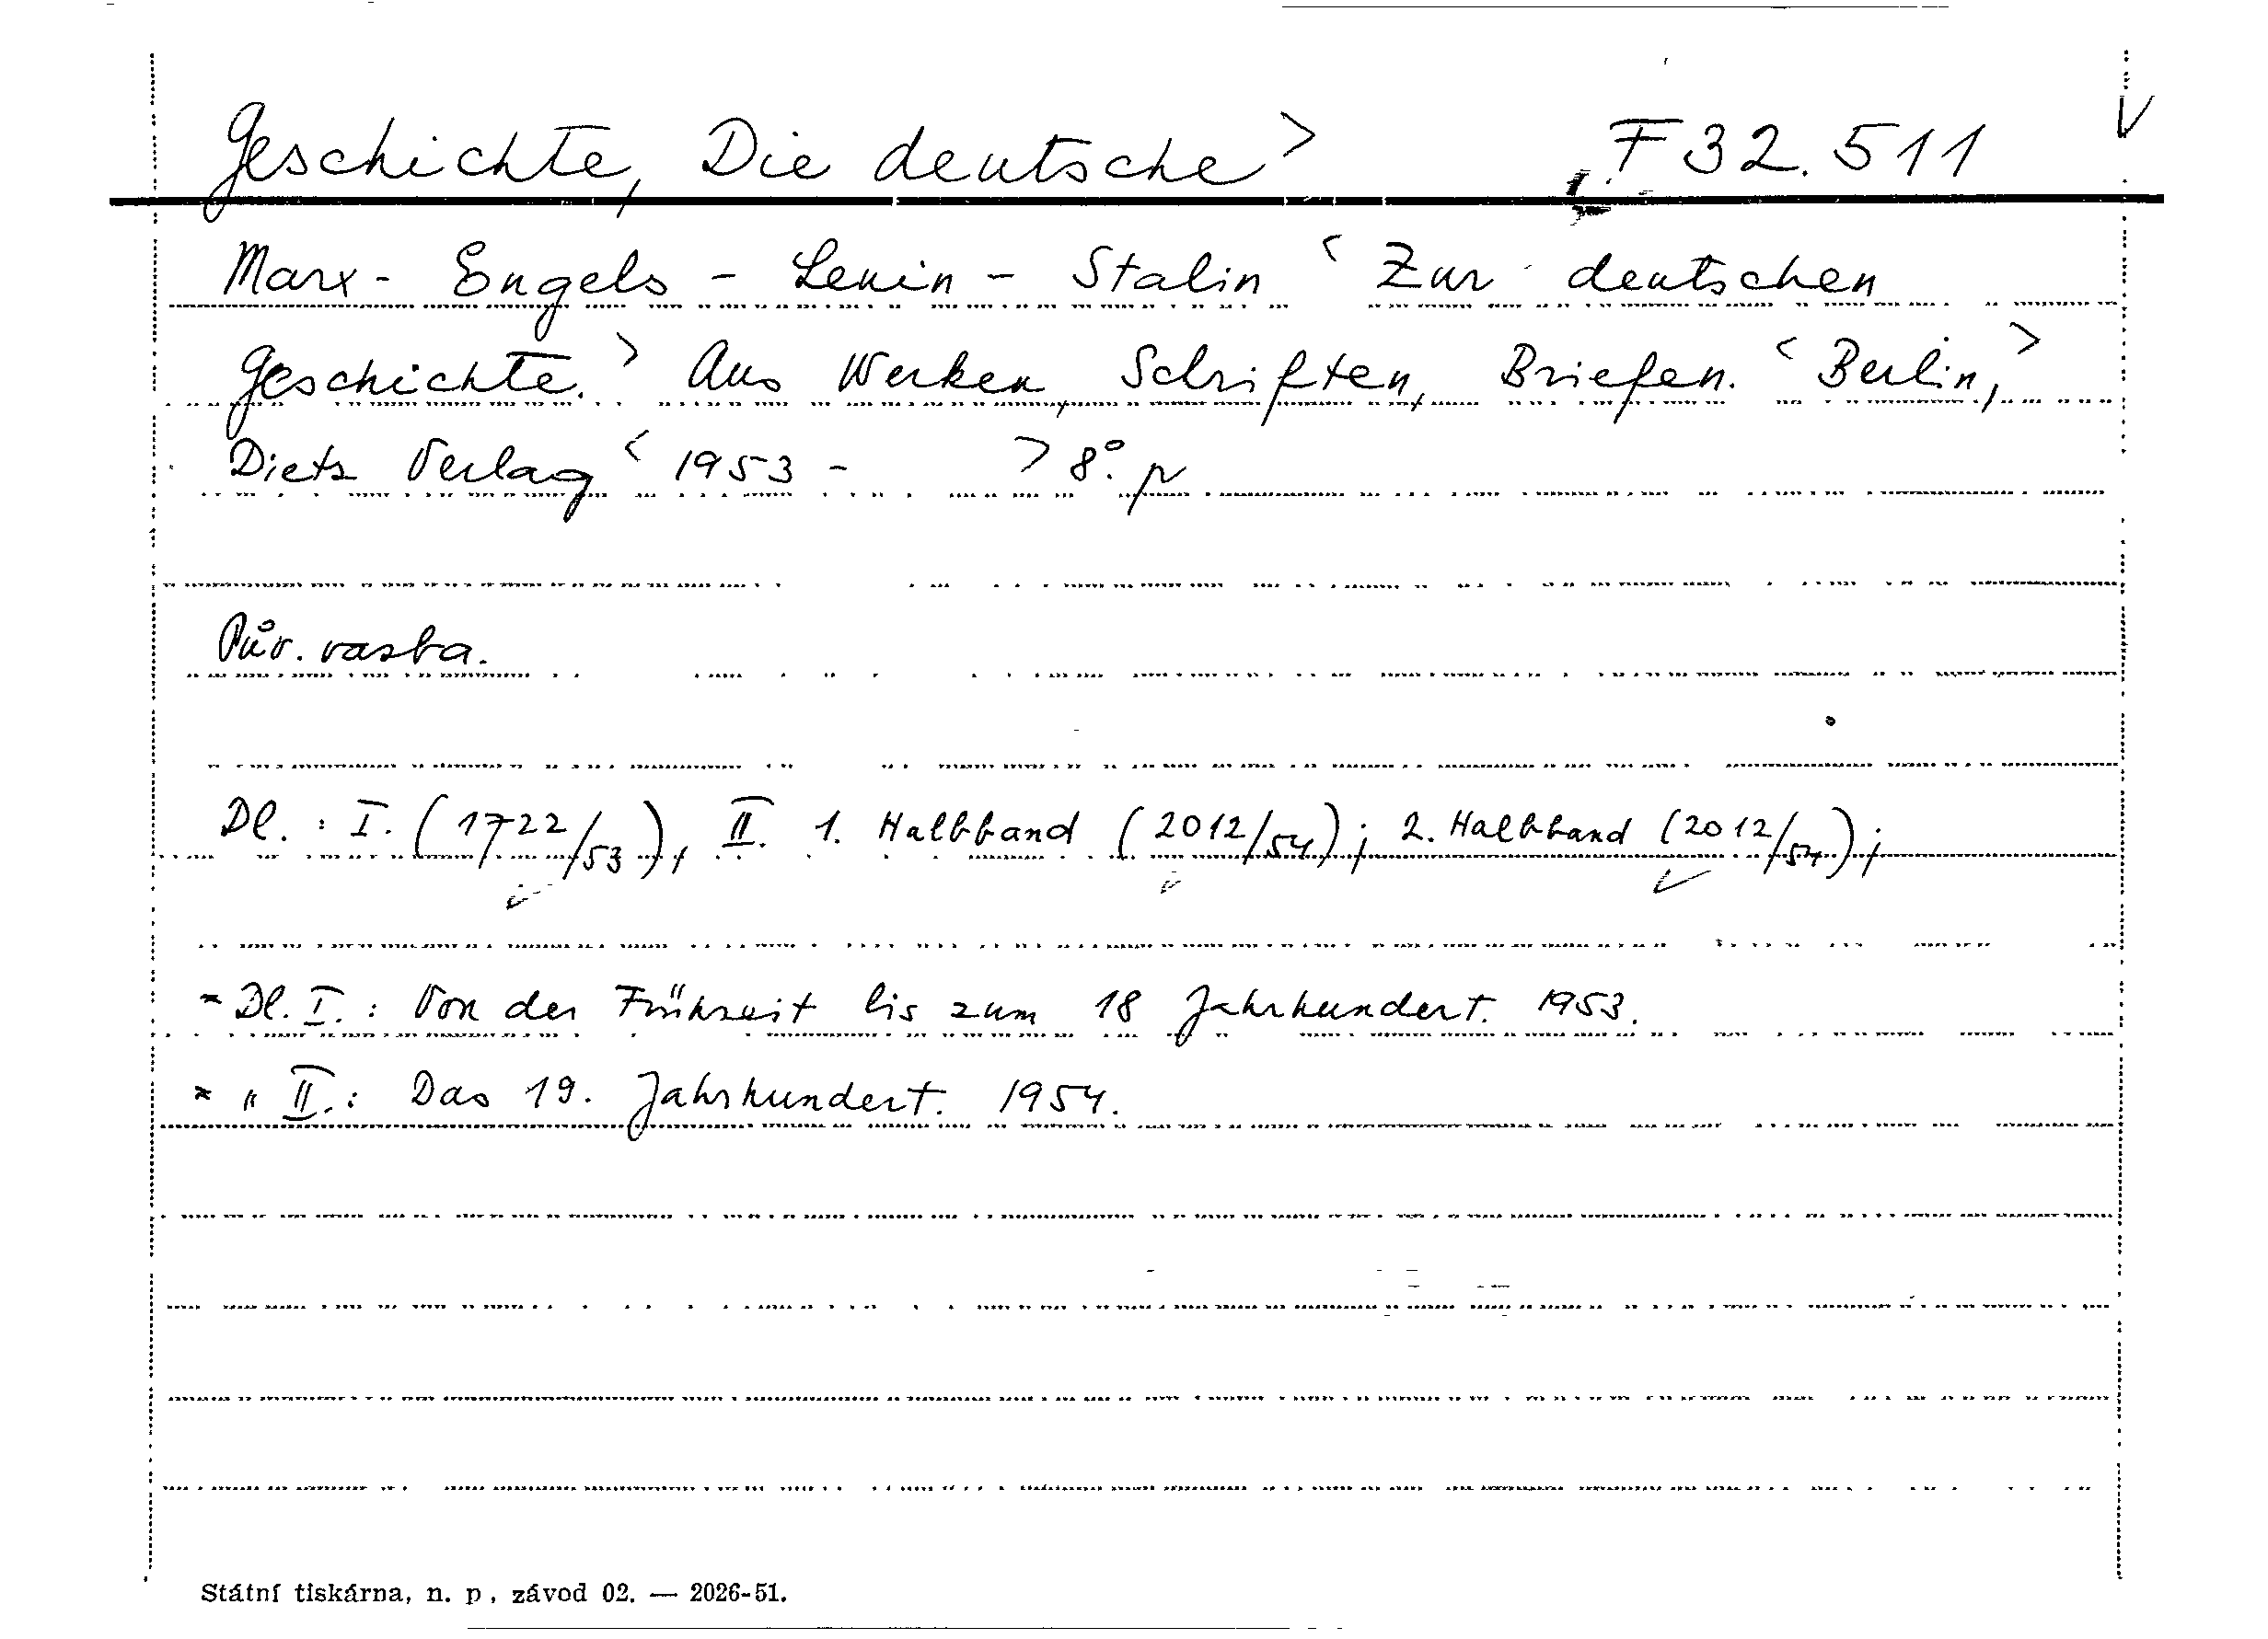 Geschichte, Die deutsche > F 32.511
Marx - Engels - Lenin - Stalin < Zur deutschen
Geschichte. > Aus Werken, Schriften, Briefen. < Berlin, >
Dietz Verlag < 1953 - > 8°. p
Pův. vazba.
Dl. : I. (1722/53), II. 1. Halbband (2012/54); 2. Halbband (2012/54);
× Dl. I. : Von der Frühzeit bis zum 18 Jahrhundert. 1953.
× " II. : Das 19. Jahrhundert. 1954.
Státní tiskárna, n. p., závod 02. — 2026-51.